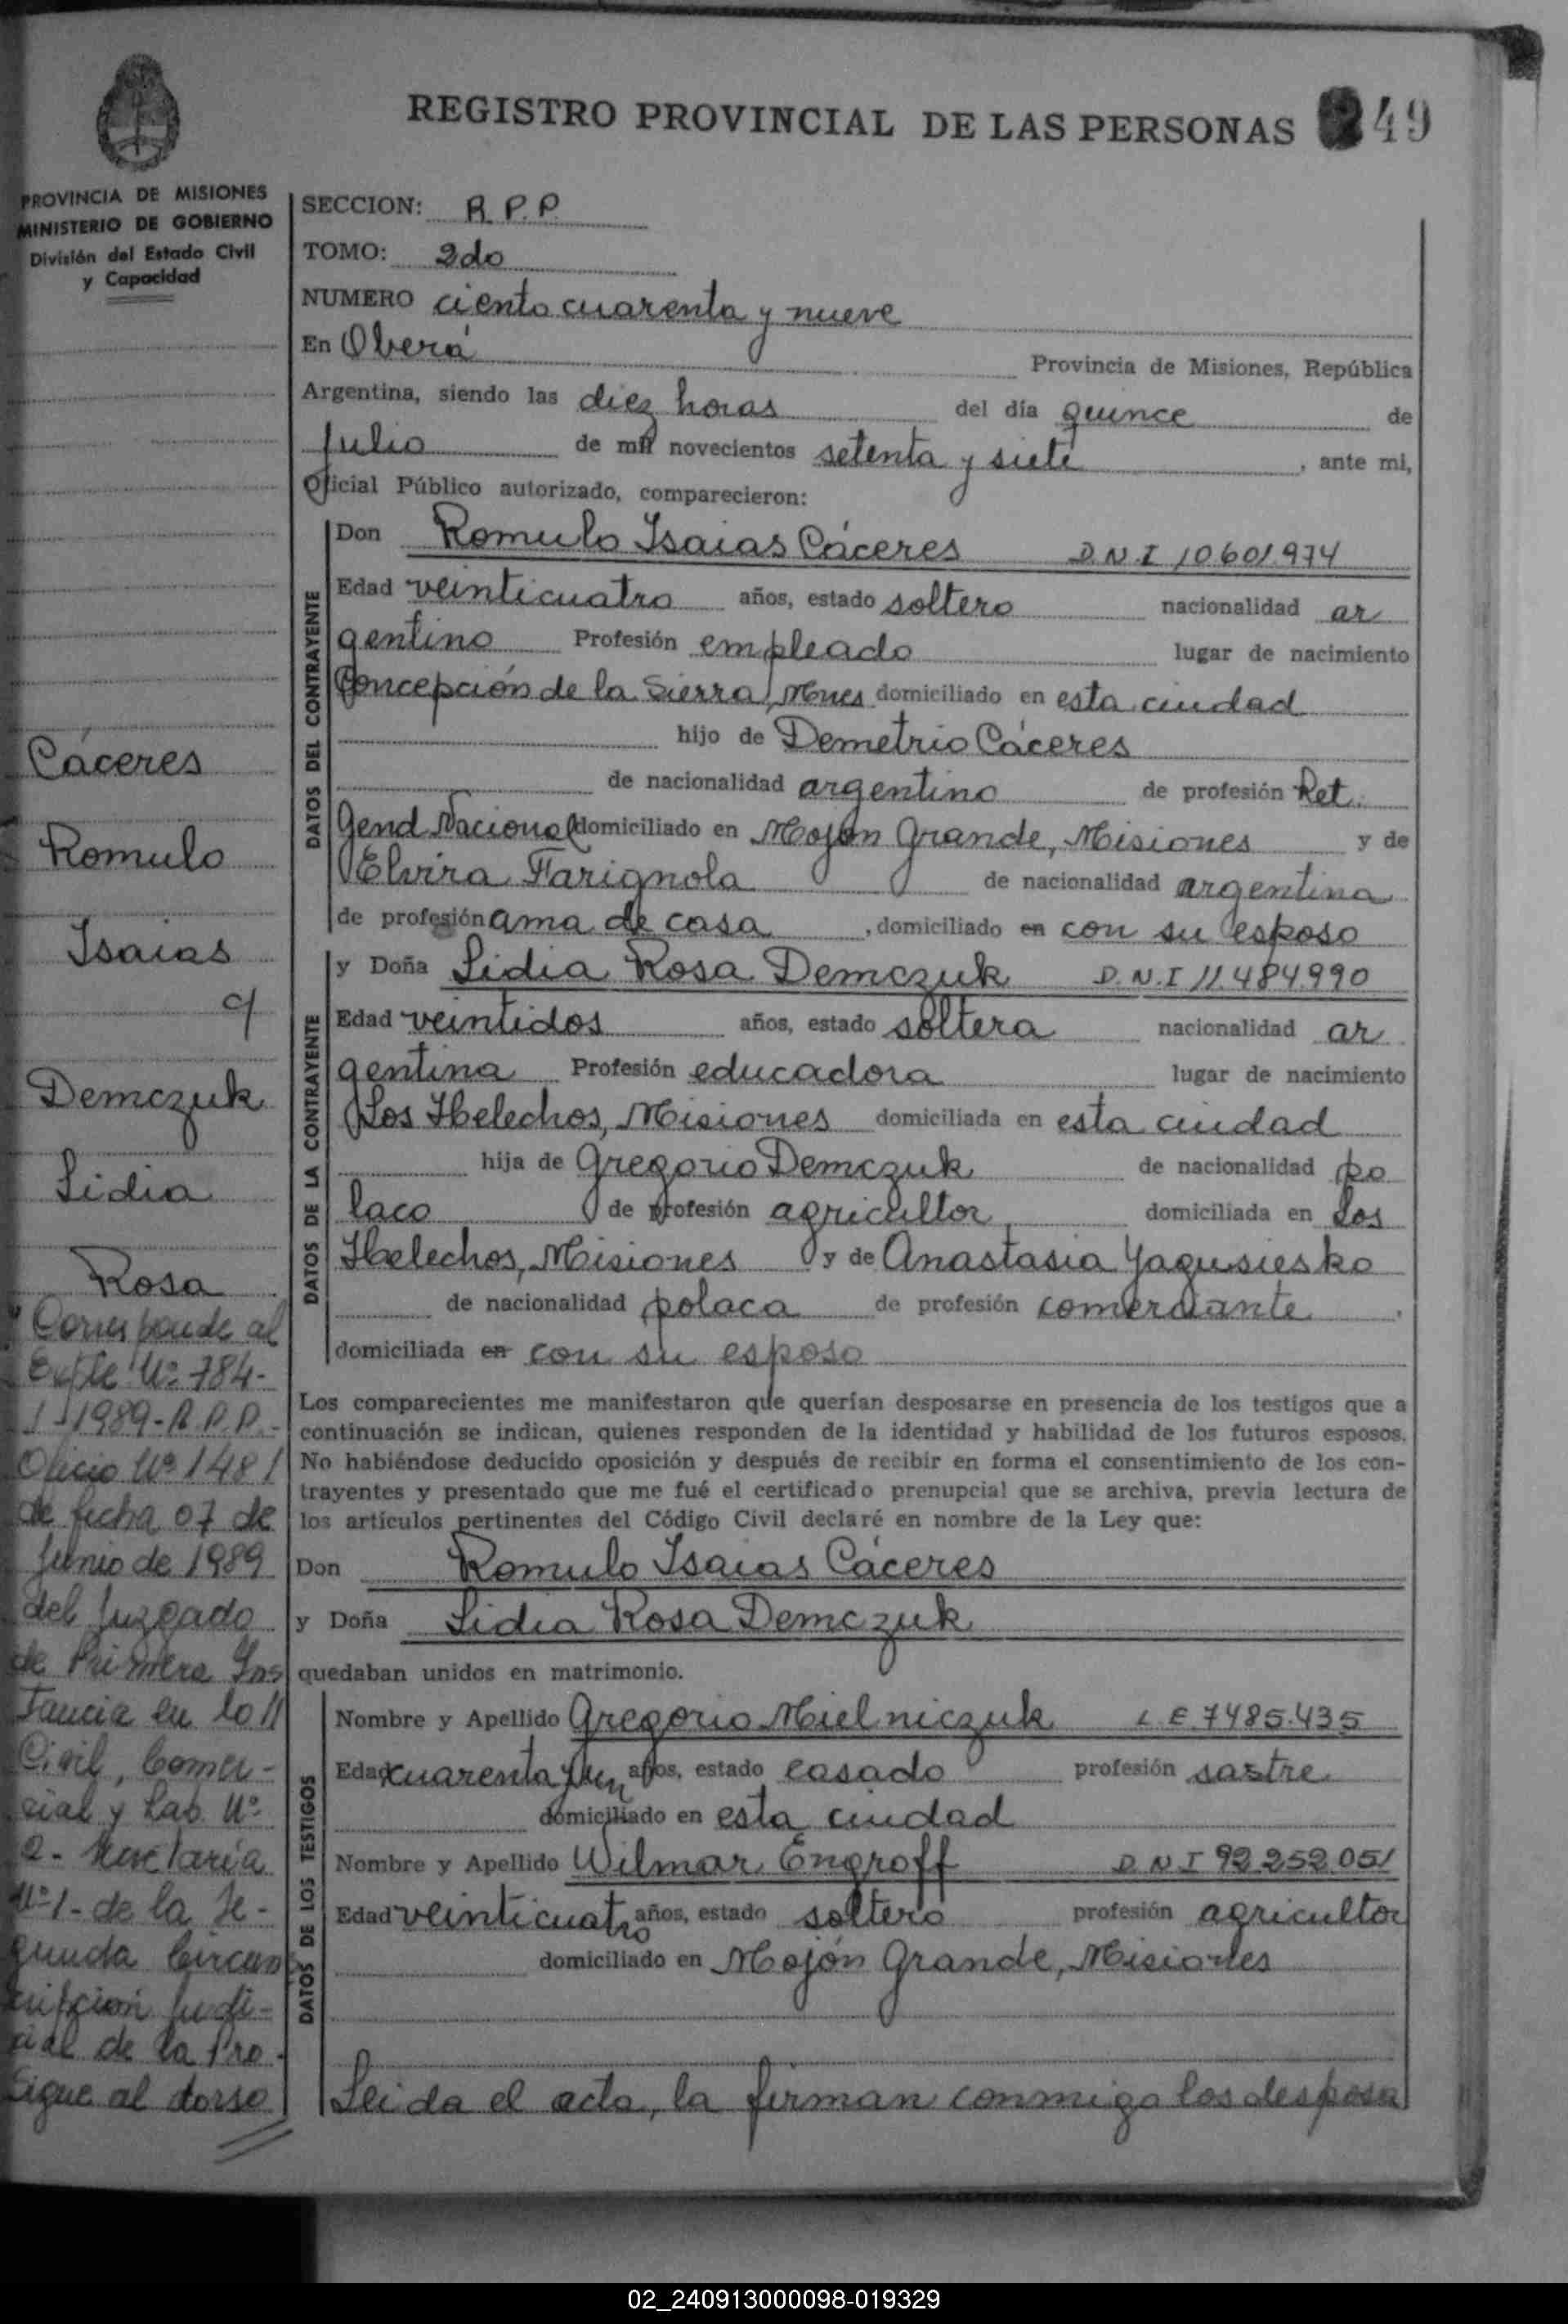 REGISTRO PROVINCIAL DE LAS PERSONAS 249
PROVINCIA DE MISIONES
MINISTERIO DE GOBIERNO
División del Estado Civil
y Capacidad
SECCION: R.P.P.
TOMO: 2do
NUMERO ciento cuarenta y nueve
En Oberá Provincia de Misiones, República
Argentina, siendo las diez horas del día quince de
Julio de mil novecientos setenta y siete, ante mi,
Oficial Público autorizado, comparecieron:
DATOS DEL CONTRAYENTE
Don Romulo Isaias Cáceres D.N.I 10.601.974
Edad veinticuatro años, estado soltero nacionalidad ar
gentino Profesión empleado lugar de nacimiento
Concepción de la Sierra, Mnes domiciliado en esta ciudad
hijo de Demetrio Cáceres
de nacionalidad argentino de profesión Ret.
Gend Nacional domiciliado en Mojón Grande, Misiones y de
Elvira Farignola de nacionalidad argentina
de profesión ama de casa, domiciliado en con su esposo
DATOS DE LA CONTRAYENTE
y Doña Lidia Rosa Demczuk D.N.I 11.484.990
Edad veintidos años, estado soltera nacionalidad ar
gentina Profesión educadora lugar de nacimiento
Los Helechos, Misiones domiciliada en esta ciudad
hija de Gregorio Demczuk de nacionalidad po
laco de profesión agricultor, domiciliada en Los
Helechos, Misiones y de Anastasia Yagusiesko
de nacionalidad polaca de profesión comerciante,
domiciliada en con su esposo
Los comparecientes me manifestaron que querían desposarse en presencia de los testigos que a
continuación se indican, quienes responden de la identidad y habilidad de los futuros esposos.
No habiéndose deducido oposición y después de recibir en forma el consentimiento de los con-
trayentes y presentado que me fué el certificado prenupcial que se archiva, previa lectura de
los artículos pertinentes del Código Civil declaré en nombre de la Ley que:
Don Romulo Isaias Cáceres
y Doña Lidia Rosa Demczuk
quedaban unidos en matrimonio.
DATOS DE LOS TESTIGOS
Nombre y Apellido Gregorio Mielniczuk L.E. 7485.435
Edad cuarenta y un años, estado casado profesión sastre
domiciliado en esta ciudad
Nombre y Apellido Wilmar Engroff D N I 92.252.051
Edad veinticuatro años, estado soltero profesión agricultor
domiciliado en Mojón Grande, Misiones
Leida el acta, la firman conmigo los desposa
Cáceres
Romulo
Isaias
Demczuk
Lidia
Rosa
Corresponde al
Expte Nº 784-
1989-R.P.P.-
Oficio Nº 1481
de fecha 07 de
Junio de 1989
del Juzgado
de Primera Ins
tancia en lo
Civil, Comer-
cial y Lab. Nº
2- Secretaría
Nº 1- de la Se-
gunda Circuns
cripción Judi-
cial de la Pro-
Sigue al dorso
02_240913000098-019329